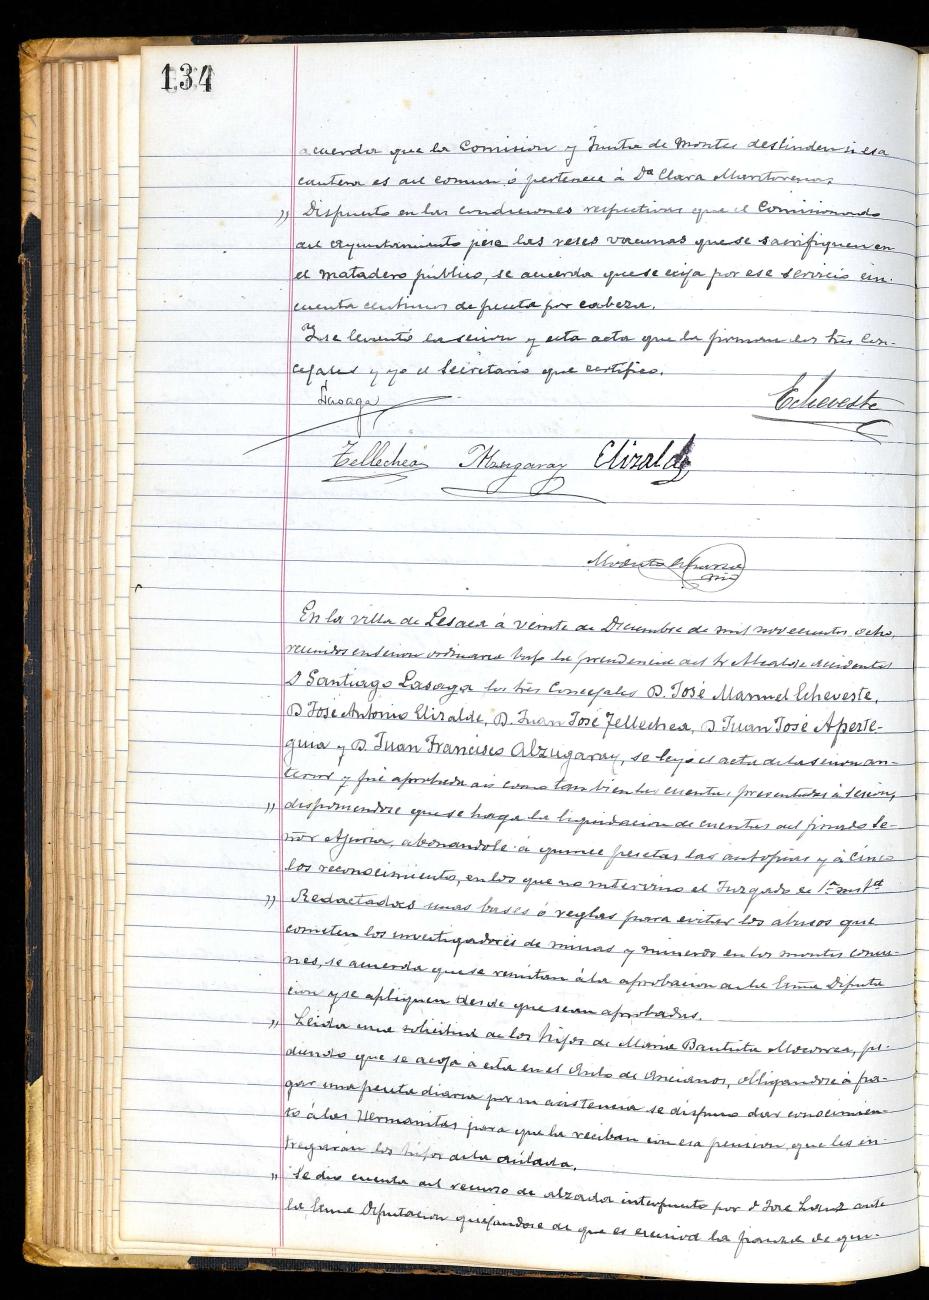 134
acuerda que la Comision y Junta de Montes deslinden si esa
cantera es del comun ó pertenece á Dª Clara Maritorena.
" Dispuesto en las condiciones respectivas que el Comisionado
del Ayuntamiento pese las reses vacunas que se sacrifiquen en
el matadero público, se acuerda que se exija por ese servicio cin-
cuenta centimos de peseta por cabeza.
Y se levantó la sesion y esta acta que la firman los tres Con-
cejales y yo el Secretario que certifico.
Lasaga
Echeveste
Tellechea Alzugaray Elizalde
En la villa de Lesaca á veinte de Diciembre de mil novecientos ocho,
reunidos en sesion ordinaria bajo la presidencia del Sr Alcalde accidental
D Santiago Lasaga los tres Concejales D. José Manuel Echeveste,
D José Antonio Elizalde, D. Juan José Tellechea, D Juan José Aperte-
guia y D. Juan Francisco Alzugaray, se leyó el acta de la sesion an-
terior y fué aprobada asi como tambien las cuentas presentadas á sesion,
" disponiendose que se haga la liquidacion de cuentas del finado Se-
ñor abonandole á quince pesetas las autopsias y á cinco
los reconocimientos, en los que no intervino el Juzgado de 1ª instª
" Redactadas unas bases ó reglas para evitar los abusos que
cometen los investigadores de minas y mineros en los montes comu-
nes, se acuerda que se remitan á la aprobacion de la Exma Diputa
cion y se apliquen desde que sean aprobadas.
" Leida una solicitud de los hijos de Maria Bautista pi-
diendo que se acoja á esta en el Asilo de Ancianos, obligandose á pa-
gar una peseta diaria por su asistencia se dispuso dar conocimien-
to á las Hermanitas para que la reciban con esa pension que les en-
tregarán los hijos de la asilada.
" Se dió cuenta del recurso de alzada interpuesto por D José Lanz ante
la Exma Diputacion quejandose de que es excesiva la fianza de quin-